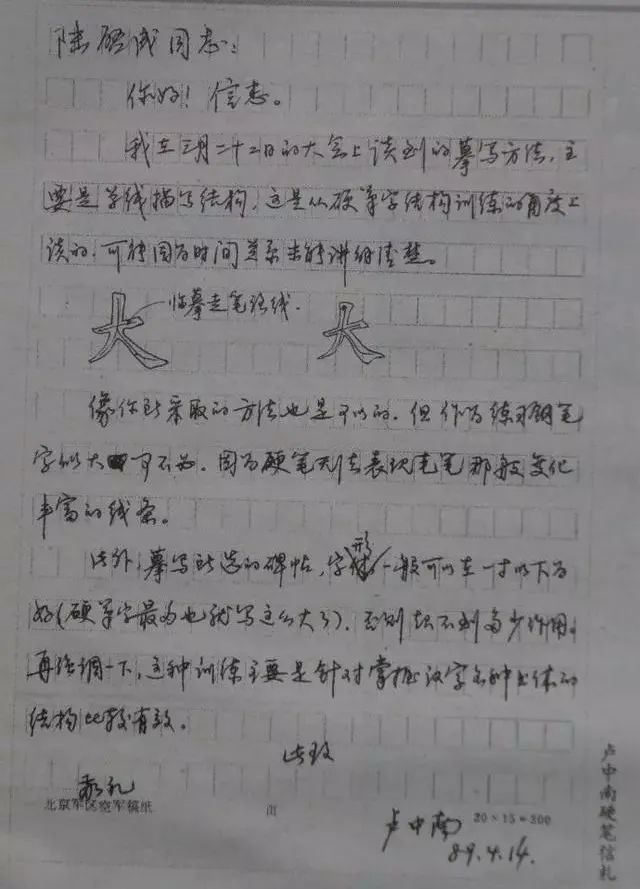 陆砥成同志：
你好！信悉。
我在三月二十二日的大会上谈到的摹写方法，主
要是单线描写结构，这是从硬笔字结构训练的角度上
谈的，可能因为时间关系未能讲得清楚。
大 临摹走笔路线. 大
像你所采取的方法也是可以的，但作为练习钢笔
字似大可不必，因为硬笔无法表现毛笔那般变化
丰富的线条。
此外，摹写所选的碑帖，字形一般可以在一寸以下为
好（硬笔字最多也就写这么大了），否则起不到多少作用。
再强调一下，这种训练主要是针对掌握汉字各种书体的
结构比较有效。
此致
敬礼
北京军区空军稿纸
20×15=300
卢中南
89.4.14.
卢中南硬笔信札